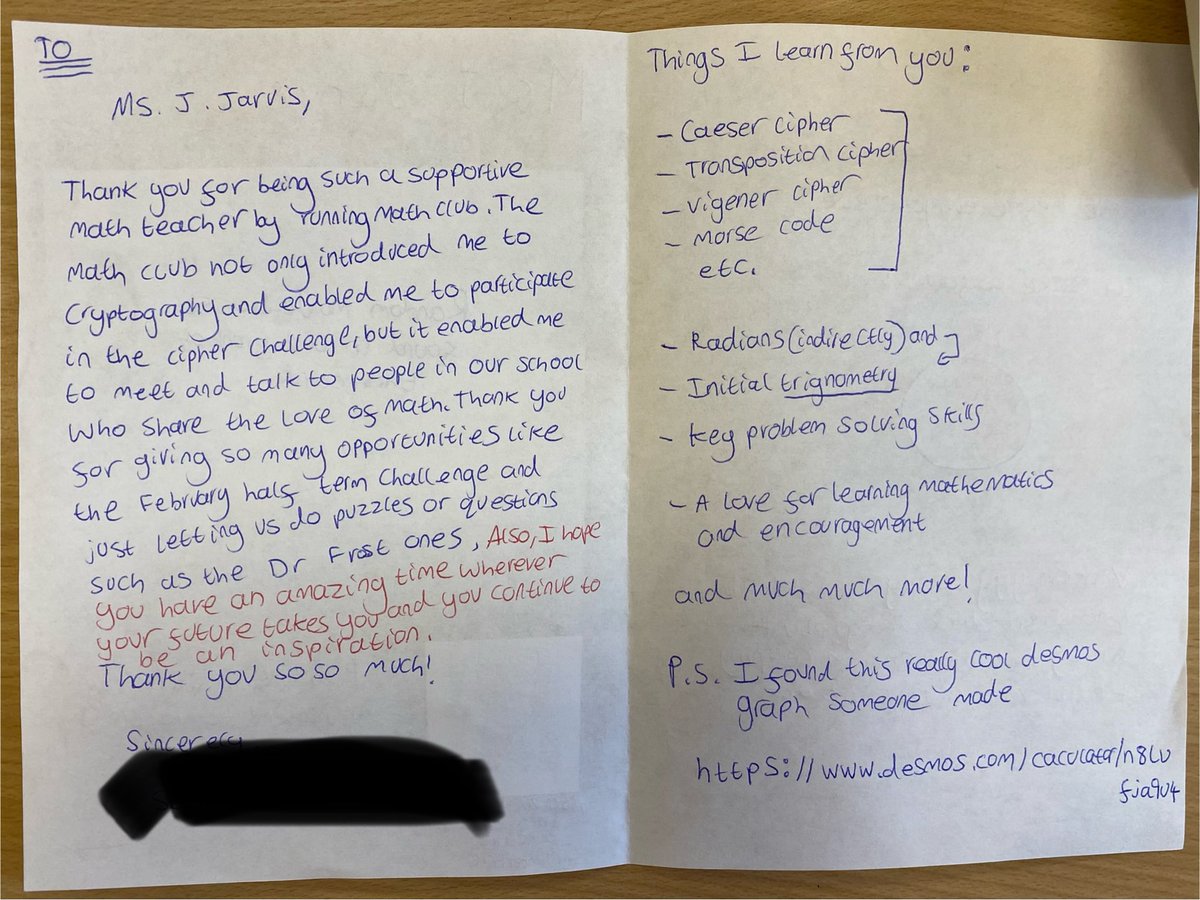 TO
Ms. J. Jarvis,
Thank you for being such a supportive
math teacher by running Math club. The
Math club not only introduced me to
Cryptography and enabled me to participate
in the cipher Challenge, but it enabled me
to meet and talk to people in our school
who share the love of math. Thank you
for giving so many opportunities like
the February half term Challenge and
just letting us do puzzles or questions
such as the Dr Frost ones, Also, I hope
you have an amazing time wherever
your future takes you and you continue to
be an inspiration.
Thank you so so much!
Sincerely
Things I learn from you:
- Caeser cipher
- Transposition cipher
- Vigener cipher
- Morse code
etc.
- Radians (indirectly) and
- Initial trignometry
- key problem solving skills
- A love for learning mathematics
and encouragement
and much much more!
P.S. I found this really cool desmos
graph someone made
https://www.desmos.com/caculator/n8lv
fja9u4